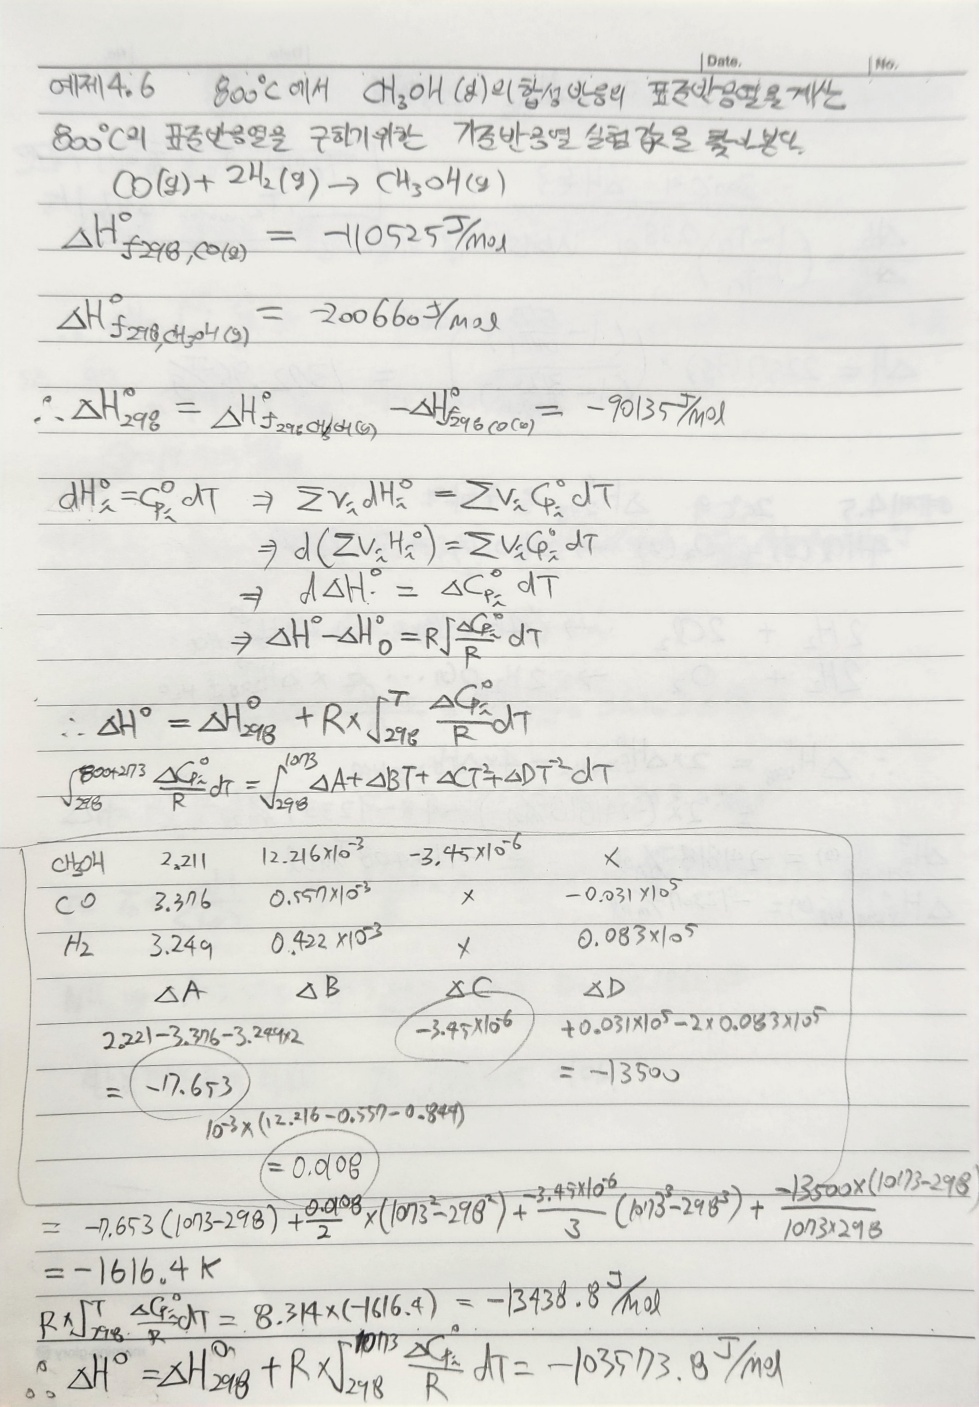 Date.
No.
예제4.6 800℃에서 CH₃OH(g)의 합성반응의 표준반응열을 계산
800℃의 표준반응열을 구하기위한 기준반응열 실험값을 찾아본다.
CO(g) + 2H₂(g) → CH₃OH(g)
ΔH°f298,CO(g) = -110525 J/mol
ΔH°f298,CH₃OH(g) = -200660 J/mol
∴ ΔH°298 = ΔH°f298CH₃OH(G) - ΔH°f298CO(G) = -90135 J/mol
dH°i = C°pi dT ⇒ ΣVi dH°i = ΣVi C°pi dT
⇒ d(ΣViH°i) = ΣVi C°pi dT
⇒ dΔH° = ΔC°pi dT
⇒ ΔH° - ΔH°0 = R∫ ΔC°pi/R dT
∴ ΔH° = ΔH°298 + R× ∫298^T ΔC°pi/R dT
∫298^800+273 ΔC°pi/R dT = ∫298^1073 ΔA + ΔBT + ΔCT² + ΔDT⁻² dT
CH₃OH 2.211 12.216×10⁻³ -3.45×10⁻⁶ ×
CO 3.376 0.557×10⁻³ × -0.031×10⁵
H₂ 3.249 0.422×10⁻³ × 0.083×10⁵
ΔA ΔB ΔC ΔD
2.221-3.376-3.249×2 -3.45×10⁻⁶ +0.031×10⁵-2×0.083×10⁵
= -17.653 = -13500
10⁻³×(12.216-0.557-0.844)
= 0.0108
= -7.653(1073-298) + 0.0108/2 ×(1073²-298²) + -3.45×10⁻⁶/3 (1073³-298³) + -13500×(1073-298)/1073×298
= -1616.4 K
R×∫298^T ΔC°pi/R dT = 8.314×(-1616.4) = -13438.8 J/mol
∴ ΔH° = ΔH°298 + R×∫298^1073 ΔC°pi/R dT = -103573.8 J/mol